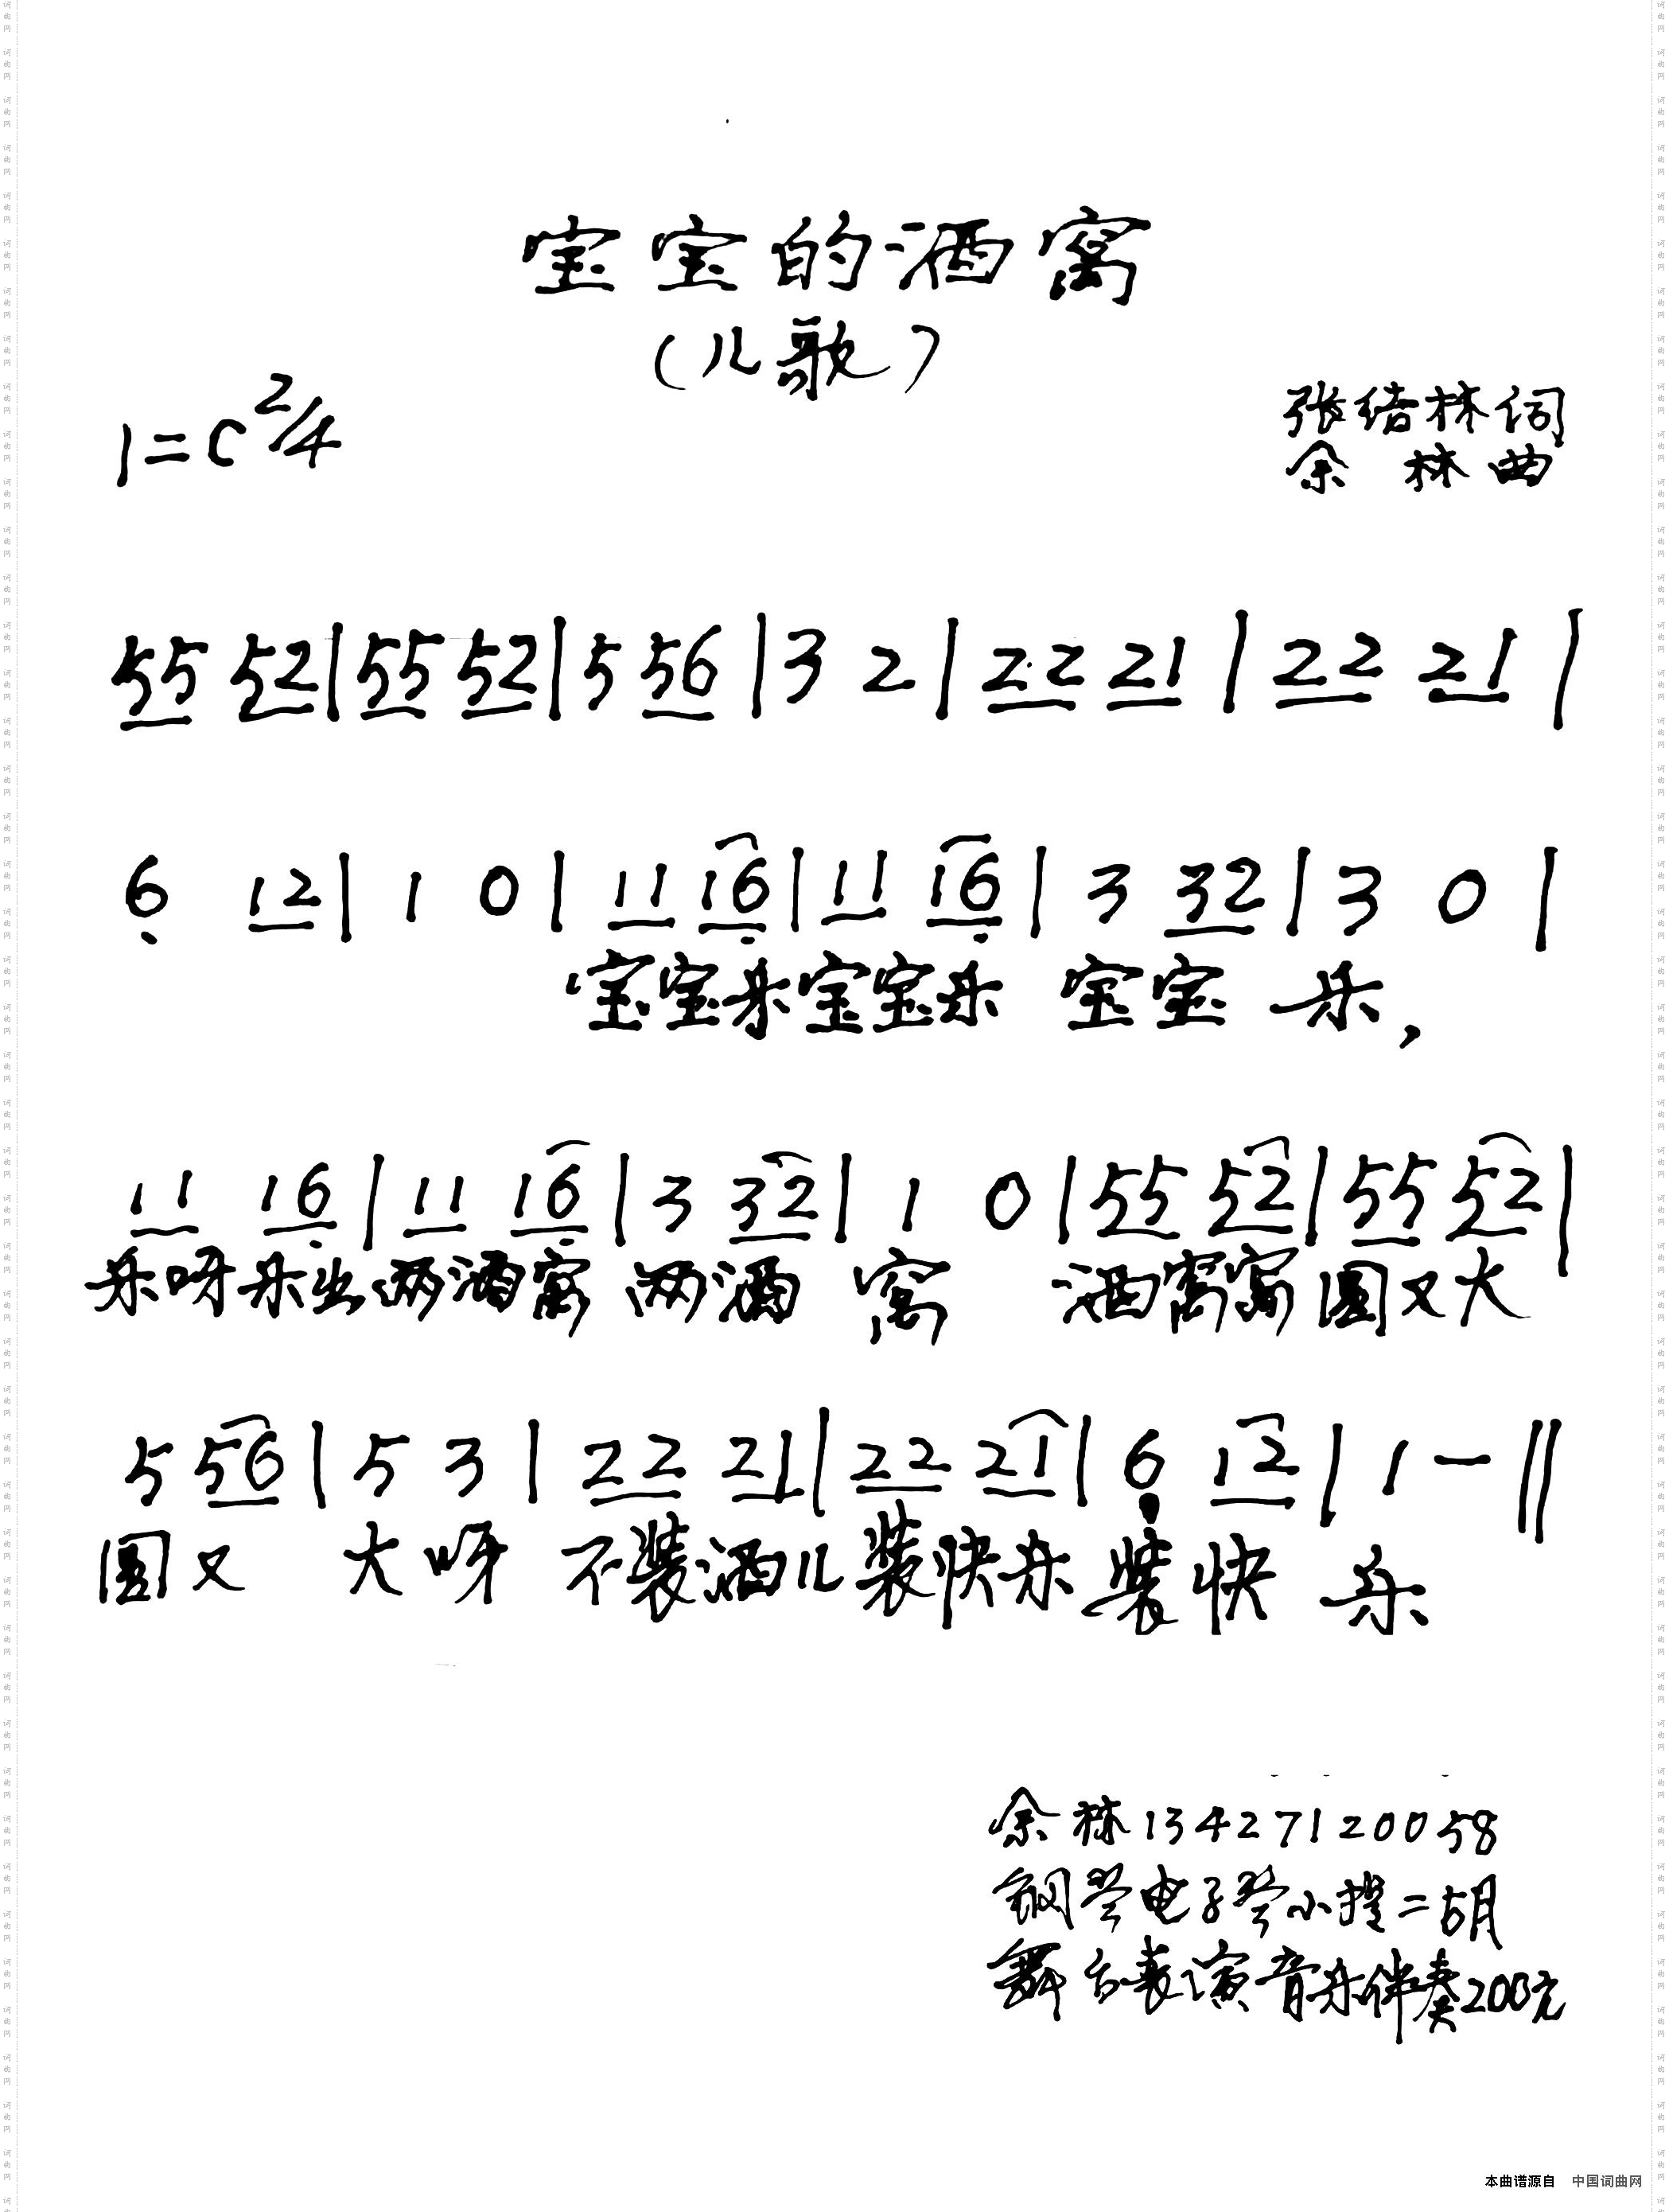 宝宝的酒窝
(儿歌)
1=C 2/4
张绪林词
余 林 曲
55 52|55 52|5 56|3 2|22 21|22 21|
6̣ 12|1 0|11 16̣|11 16̣|3 32|3 0|
宝宝乐宝宝乐 宝宝 乐,
11 16̣|11 16̣|3 32|1 0|55 52|55 52|
乐呀乐出两酒窝 两酒 窝 酒窝窝圆又大
5 56|5 3|22 21|22 21|6̣ 12|1 -‖
圆又 大呀 不装酒儿装快乐装快 乐
余林13427120058
钢琴电子琴小提二胡
舞台表演音乐伴奏200元
本曲谱源自 中国词曲网